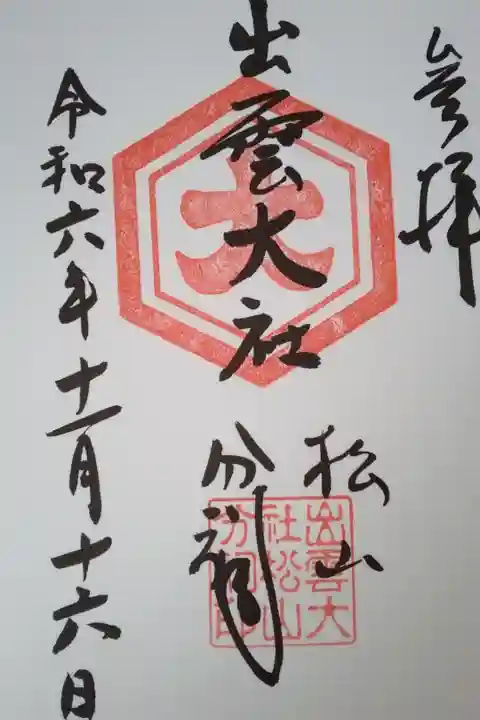 参拝
出雲大社
大
松山
分祠
出雲大
社松山
分祠印
令和六年十一月十六日